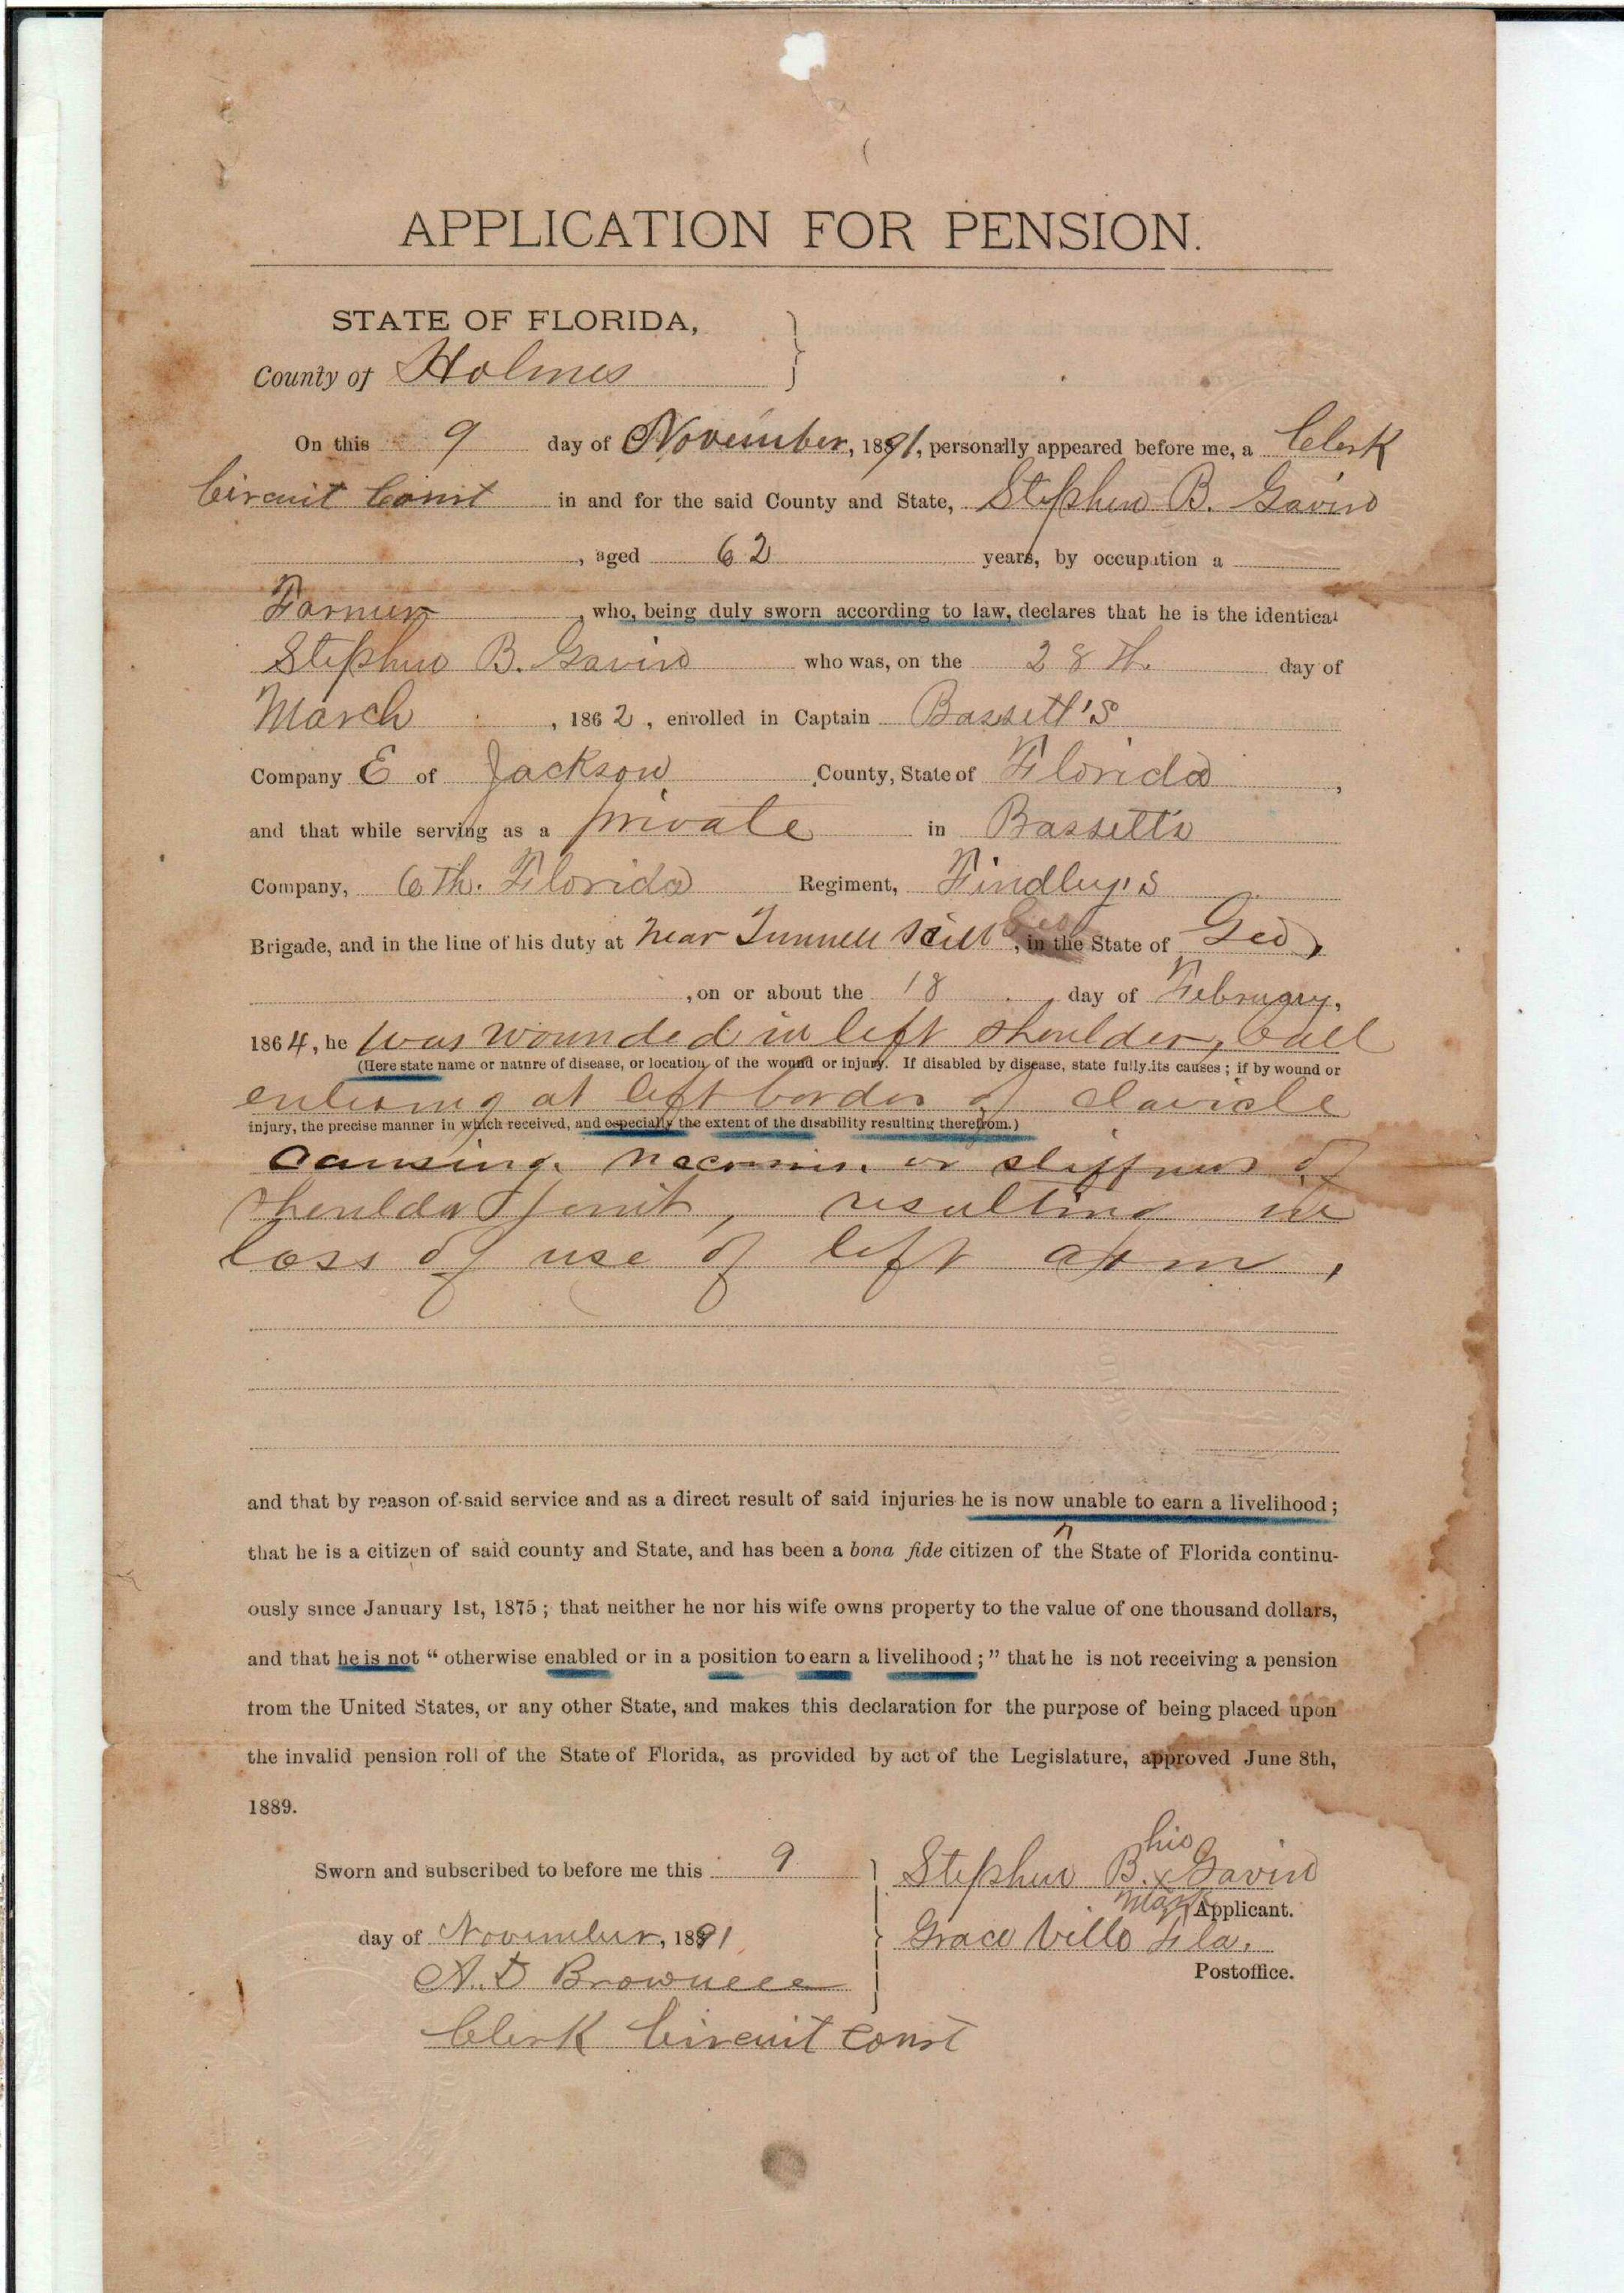 APPLICATION FOR PENSION.
STATE OF FLORIDA,
County of Holmes
On this 9 day of November, 1891, personally appeared before me, a Clerk
Circuit Court in and for the said County and State, Stephen B. Gavin
, aged 62 years, by occupation a
Farmer, who, being duly sworn according to law, declares that he is the identical
Stephen B. Gavin who was, on the 28th. day of
March, 1862, enrolled in Captain Bassett's
Company E of Jackson County, State of Florida,
and that while serving as a private in Bassetts
Company, 6th. Florida Regiment, Findley's
Brigade, and in the line of his duty at near Tunnell Hill, in the State of Geo,
, on or about the 18 day of February,
1864, he was wounded in left shoulder, ball
(Here state name or nature of disease, or location of the wound or injury. If disabled by disease, state fully its causes ; if by wound or
entering at left border of clavicle
injury, the precise manner in which received, and especially the extent of the disability resulting therefrom.)
Causing or stiffness of
shoulder joint, resulting in
loss of use of left arm,
and that by reason of said service and as a direct result of said injuries he is now unable to earn a livelihood ;
that he is a citizen of said county and State, and has been a bona fide citizen of the State of Florida continu-
ously since January 1st, 1875 ; that neither he nor his wife owns property to the value of one thousand dollars,
and that he is not “ otherwise enabled or in a position to earn a livelihood ; ” that he is not receiving a pension
from the United States, or any other State, and makes this declaration for the purpose of being placed upon
the invalid pension roll of the State of Florida, as provided by act of the Legislature, approved June 8th,
1889.
Sworn and subscribed to before me this 9
day of November, 1891
A. D Brownell
Clerk Circuit Court
his
Stephen B. x Gavin
mark
Applicant.
Grace Ville Fla.
Postoffice.